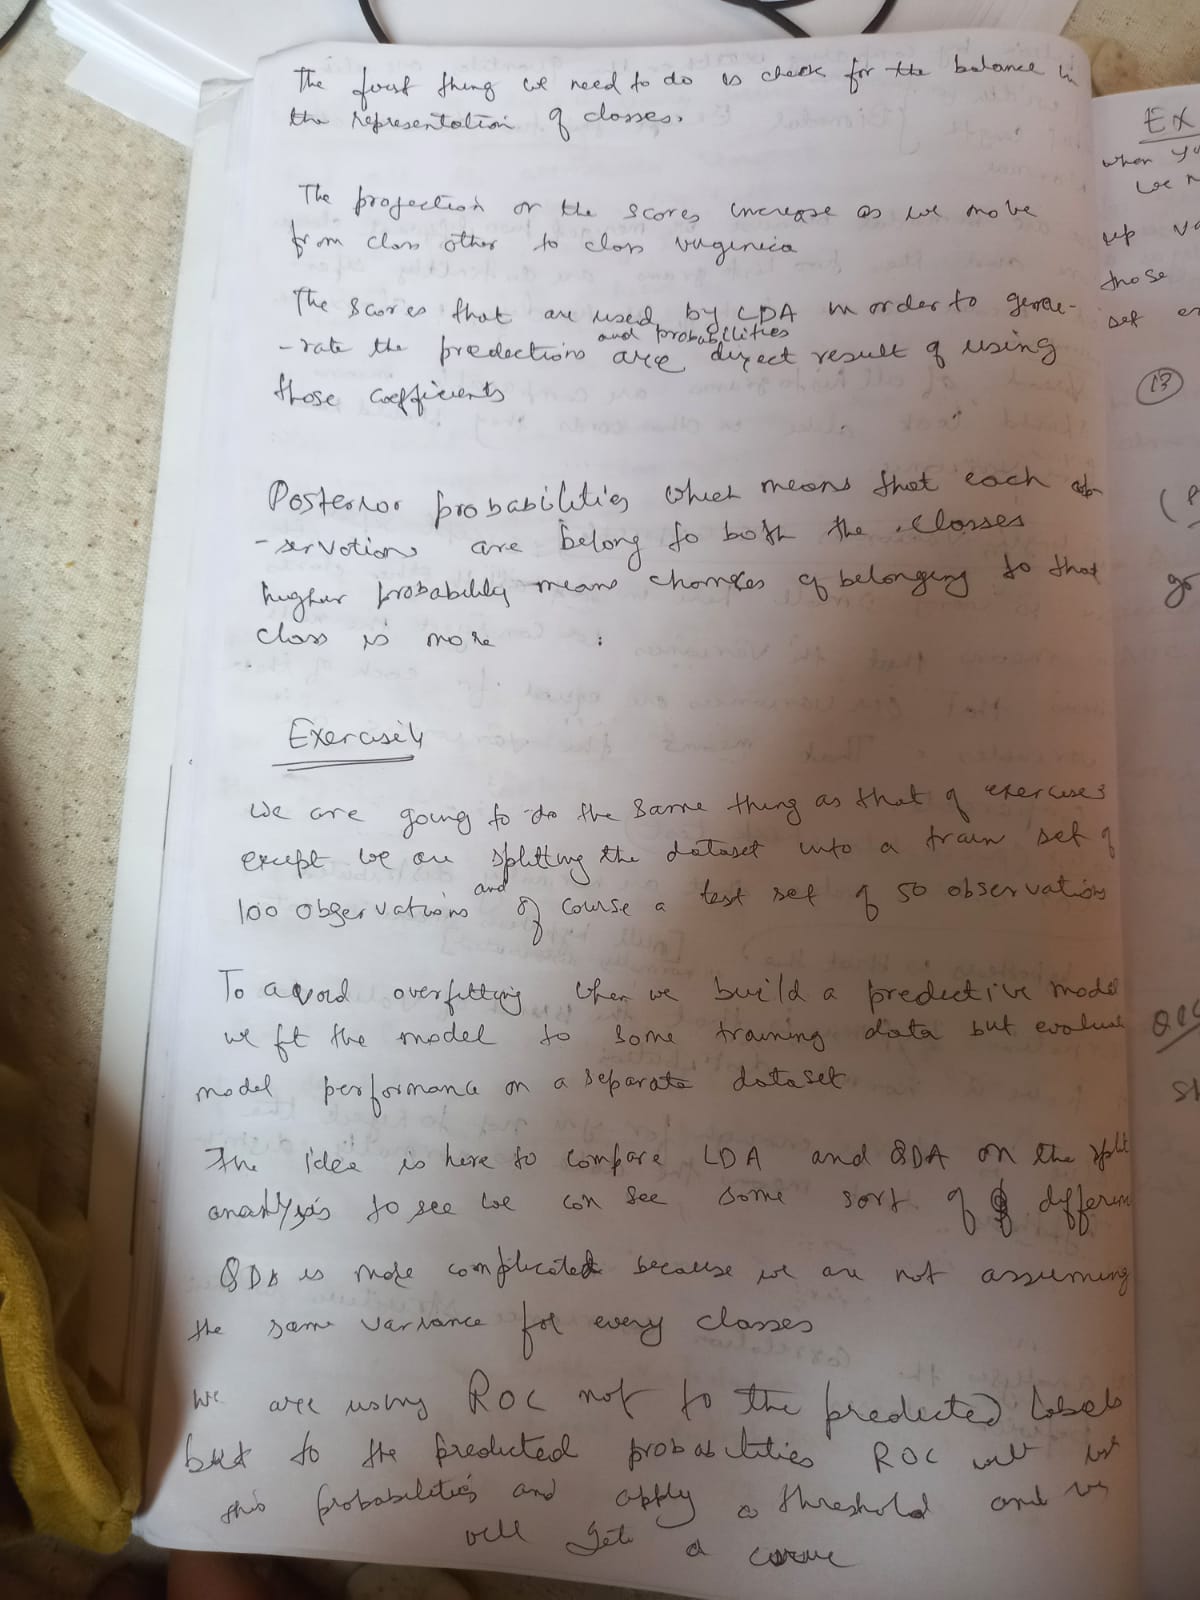 The first thing we need to do is check for the balance in
the representation of classes.
The projection or the scores increase as we move
from class other to class virginica
The scores that are used by LDA in order to gene-
-rate the predections and probabilities are direct result of using
those coefficients
Posterior probabilities which means that each ob-
-servations are belong to both the classes
higher probability means chances of belonging to that
class is more
Exercise 4
we are going to do the same thing as that of exercise 3
except we are splitting the dataset into a train set of
100 observations and of course a test set of 50 observations
To avoid overfitting when we build a predective model
we fit the model to some training data but evaluate
model performance on a separate dataset
The idea is here to compare LDA and QDA on the split
analysis to see we can see some sort of differen
QDA is more complicated because we are not assuming
the same variance for every classes
We are using ROC not to the predected labels
but to the predicted probabilities ROC will use
this probabilities and apply a threshold and we
will get a curve
EX
when yo
we n
up va
those
set
13
go